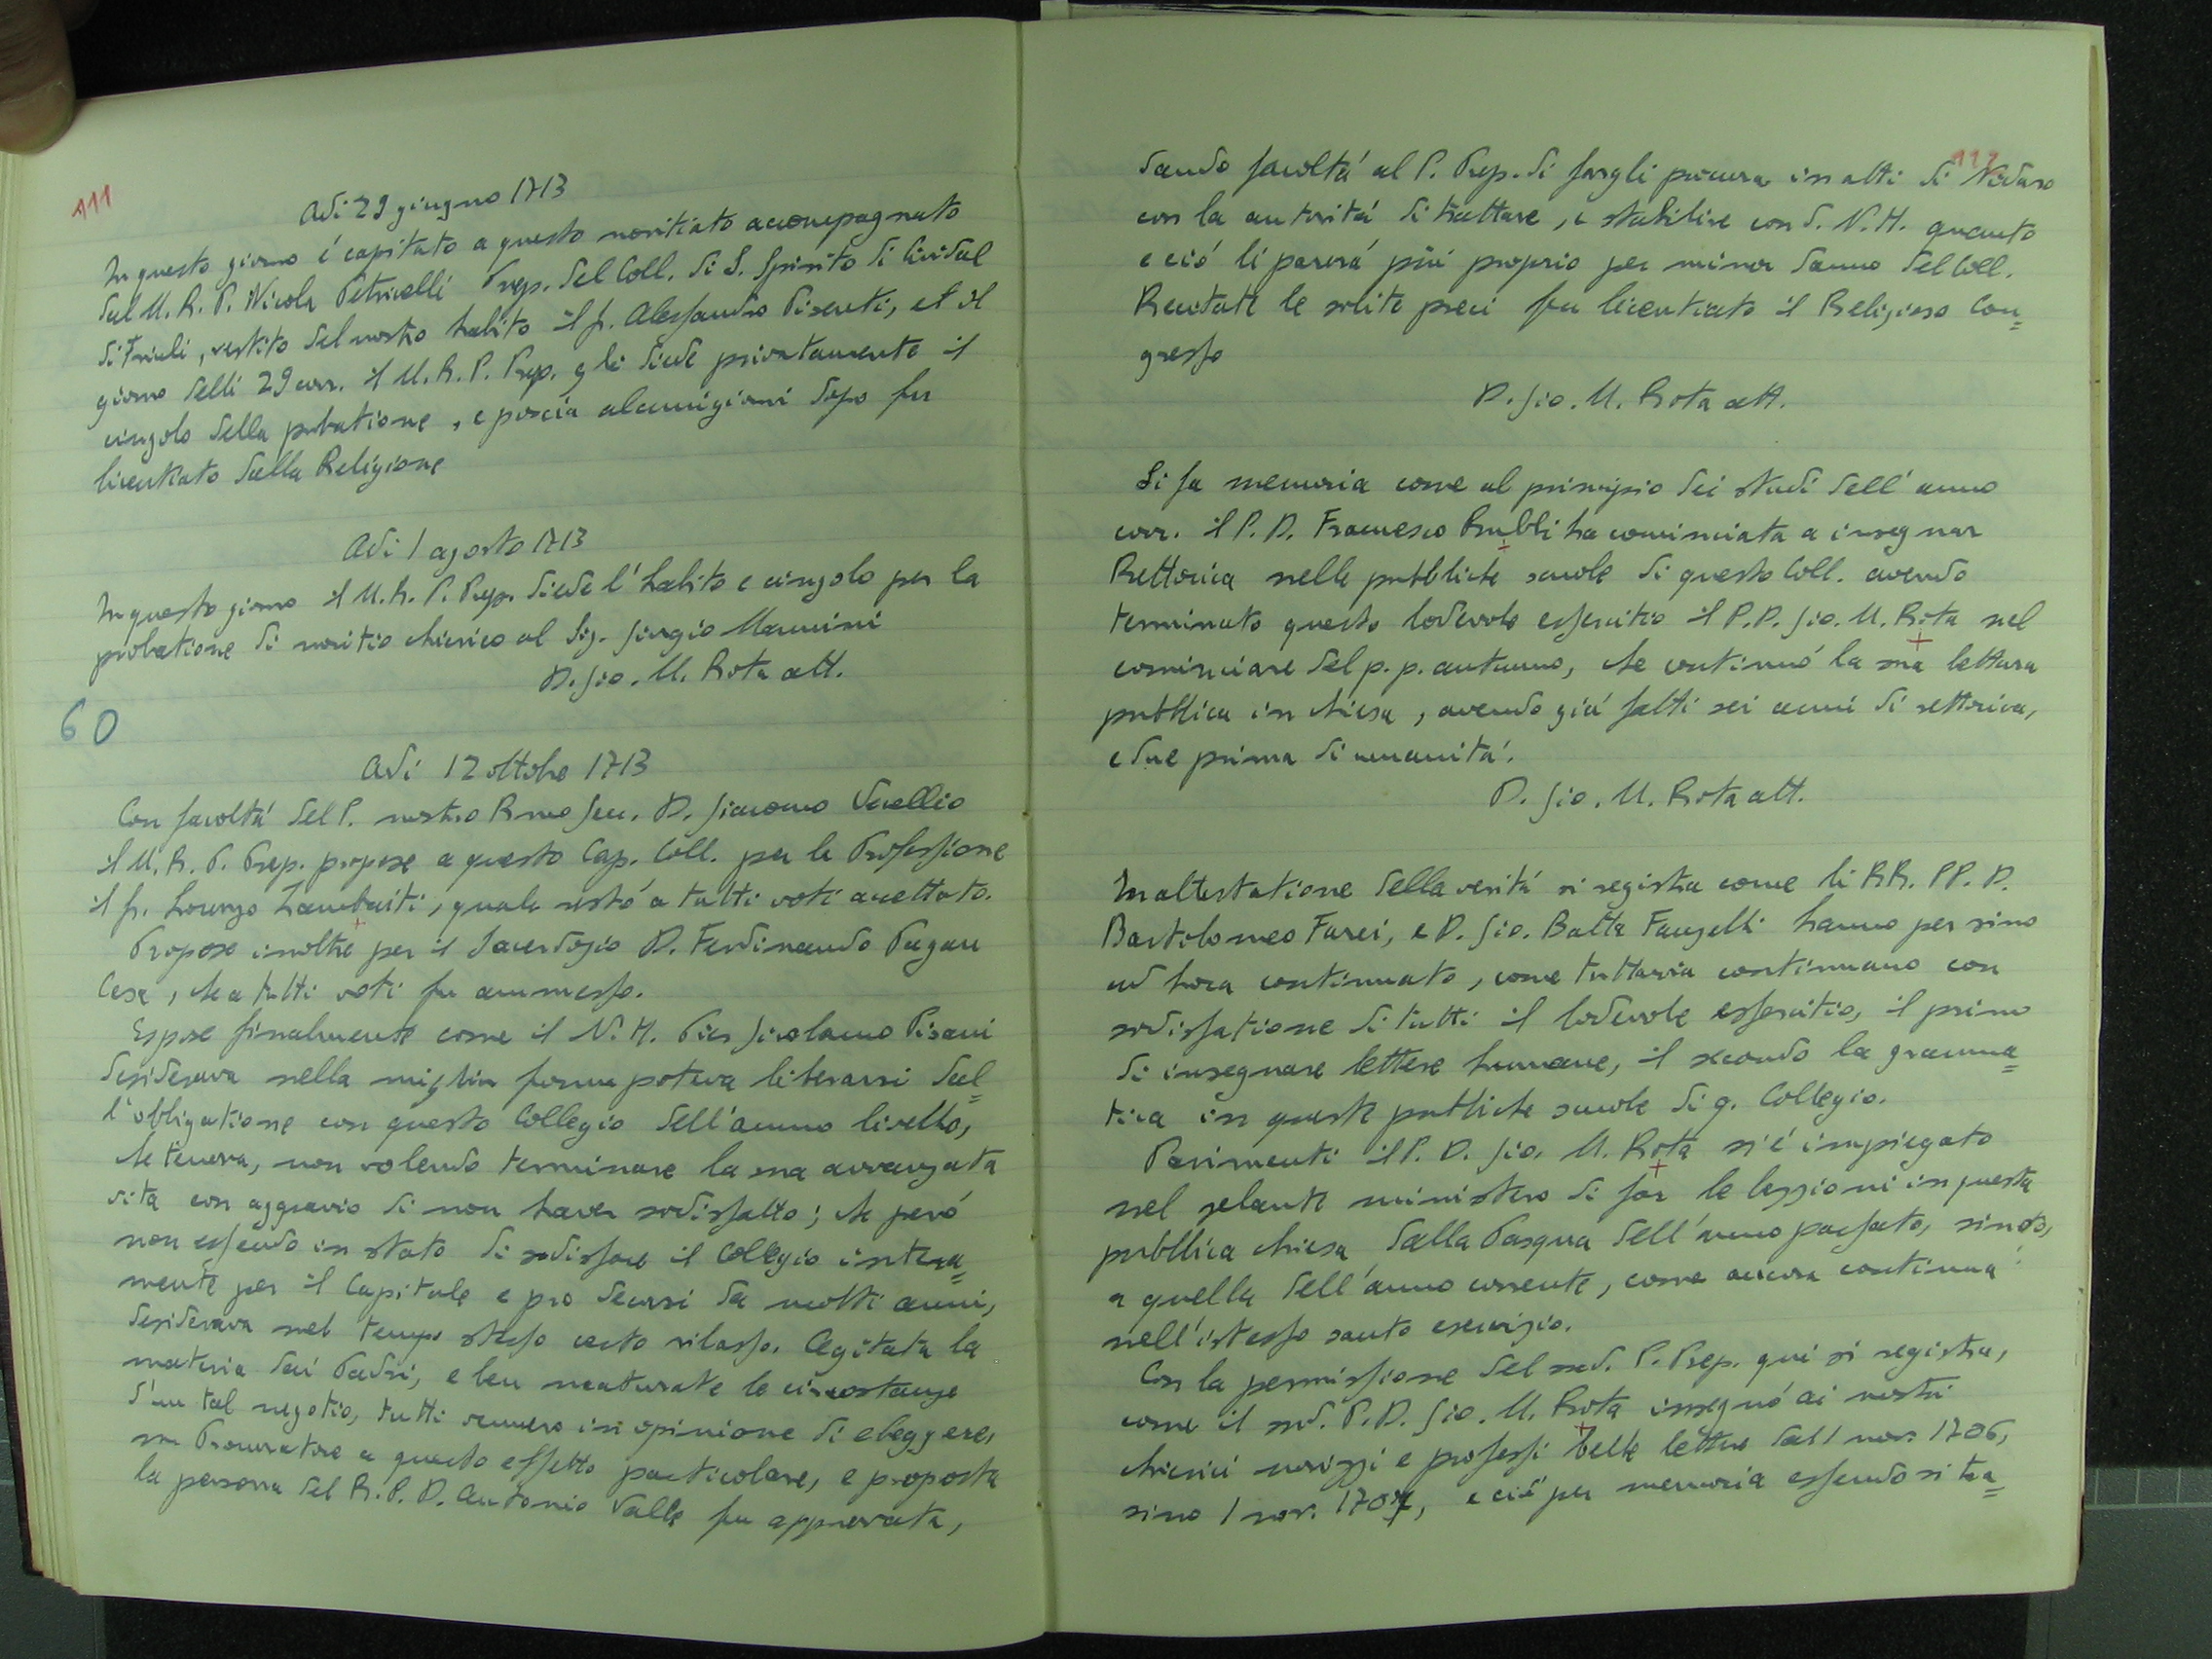 111
Adi 29 giugno 1713
In questo giorno é capitato a questo novitiato accompagnato
dal M. R. P. Nicola Petricelli Prep. del Coll. di S. Spirito di Cividal
di Friuli, vestito del nostro habito il fr. Alessandro Pisenti, et il
giorno delli 29 corr. il M. R. P. Prep. gli diede privatamente il
cingolo della probatione, e poscia alcuni giorni dopo fu
licentiato dalla Religione
Adi 1 agosto 1713
In questo giorno il M. R. P. Prep. diede l'habito e cingolo per la
probatione di novitio chierico al Sig. Giorgio Mannini
D. Gio. M. Rota att.
60
Adi 12 ottobre 1713
Con facoltá del P. nostro R.mo Gen. D. Giacomo Vecellio
il M. R. P. Prep. propose a questo Cap. Coll. per la Professione
il fr. Lorenzo Lambaiti, quale restó a tutti voti accettato.
Propose inoltre per il Sacerdozio D. Ferdinando Pagan
Cesa, che a tutti voti fu ammesso.
Espose finalmente come il N. H. Pier Girolamo Pisani
desiderava nella miglior forma poteva liberarsi dal=
l'obbligatione con questo Collegio dell'annuo livello,
che teneva, non volendo terminare la sua avvanzata
vita con aggravio di non haver sodisfatto; che peró
non essendo in stato di sodisfare il Collegio intera=
mente per il Capitale e pro decorsi da molti anni,
desiderava nel tempo stesso certo rilasso. Agitata la
materia dai Padri, e ben maturate le circostanze
d'un tal negotio, tutti vennero in opinione di eleggere,
un Procuratore a questo effetto particolare, e proposta
la persona del R. P. D. Antonio Valle fu approvata,
112
dando facoltá al P. Prep. di fargli procura in atti di Nodaro
con la autoritá di trattare, e stabilire con d. N. H. quanto
e ció li parerá piú proprio per minor danno del Coll.
Recitate le solite preci fu licentiato il Religioso Con=
gresso
D. Gio. M. Rota att.
Si fa memoria come al principio dei studi dell'anno
corr. il P. D. Francesco Rubbi ha cominciata a insegnar
Rettorica nelle pubbliche scuole di questo Coll. avendo
terminato questo lodevole essercitio il P. D. Gio. M. Rota nel
cominciare del p. p. autunno, che continuó la sua lettura
pubblica in chiesa, avendo giá fatti sei anni di rettorica,
e due prima di umanitá.
D. Gio. M. Rota att.
In attestatione della veritá si registra come li RR. PP. D.
Bartolomeo Farei, e D. Gio. Batta Fanzelli hanno per sino
ad hora continuato, come tuttavia continuano con
sodisfatione di tutti il lodevole essercitio, il primo
di insegnare lettere humane, il secondo la gramma=
tica in queste pubbliche scuole di q. Collegio.
Parimenti il P. D. Gio. M. Rota si é impiegato
nel zelante ministero di far le lezzioni in questa
pubblica chiesa dalla Pasqua dell'anno passato, sino
a quella dell'anno corrente, come ancora continua
nell'istesso santo esercizio.
Con la permissione del sud. P. Prep. qui si registra,
come il sud. P. D. Gio. M. Rota insegnó ai nostri
chierici novizzi e professi belle lettere dal 1 nov. 1706,
sino 1 nov. 1707, e ció per memoria essendosi tra=